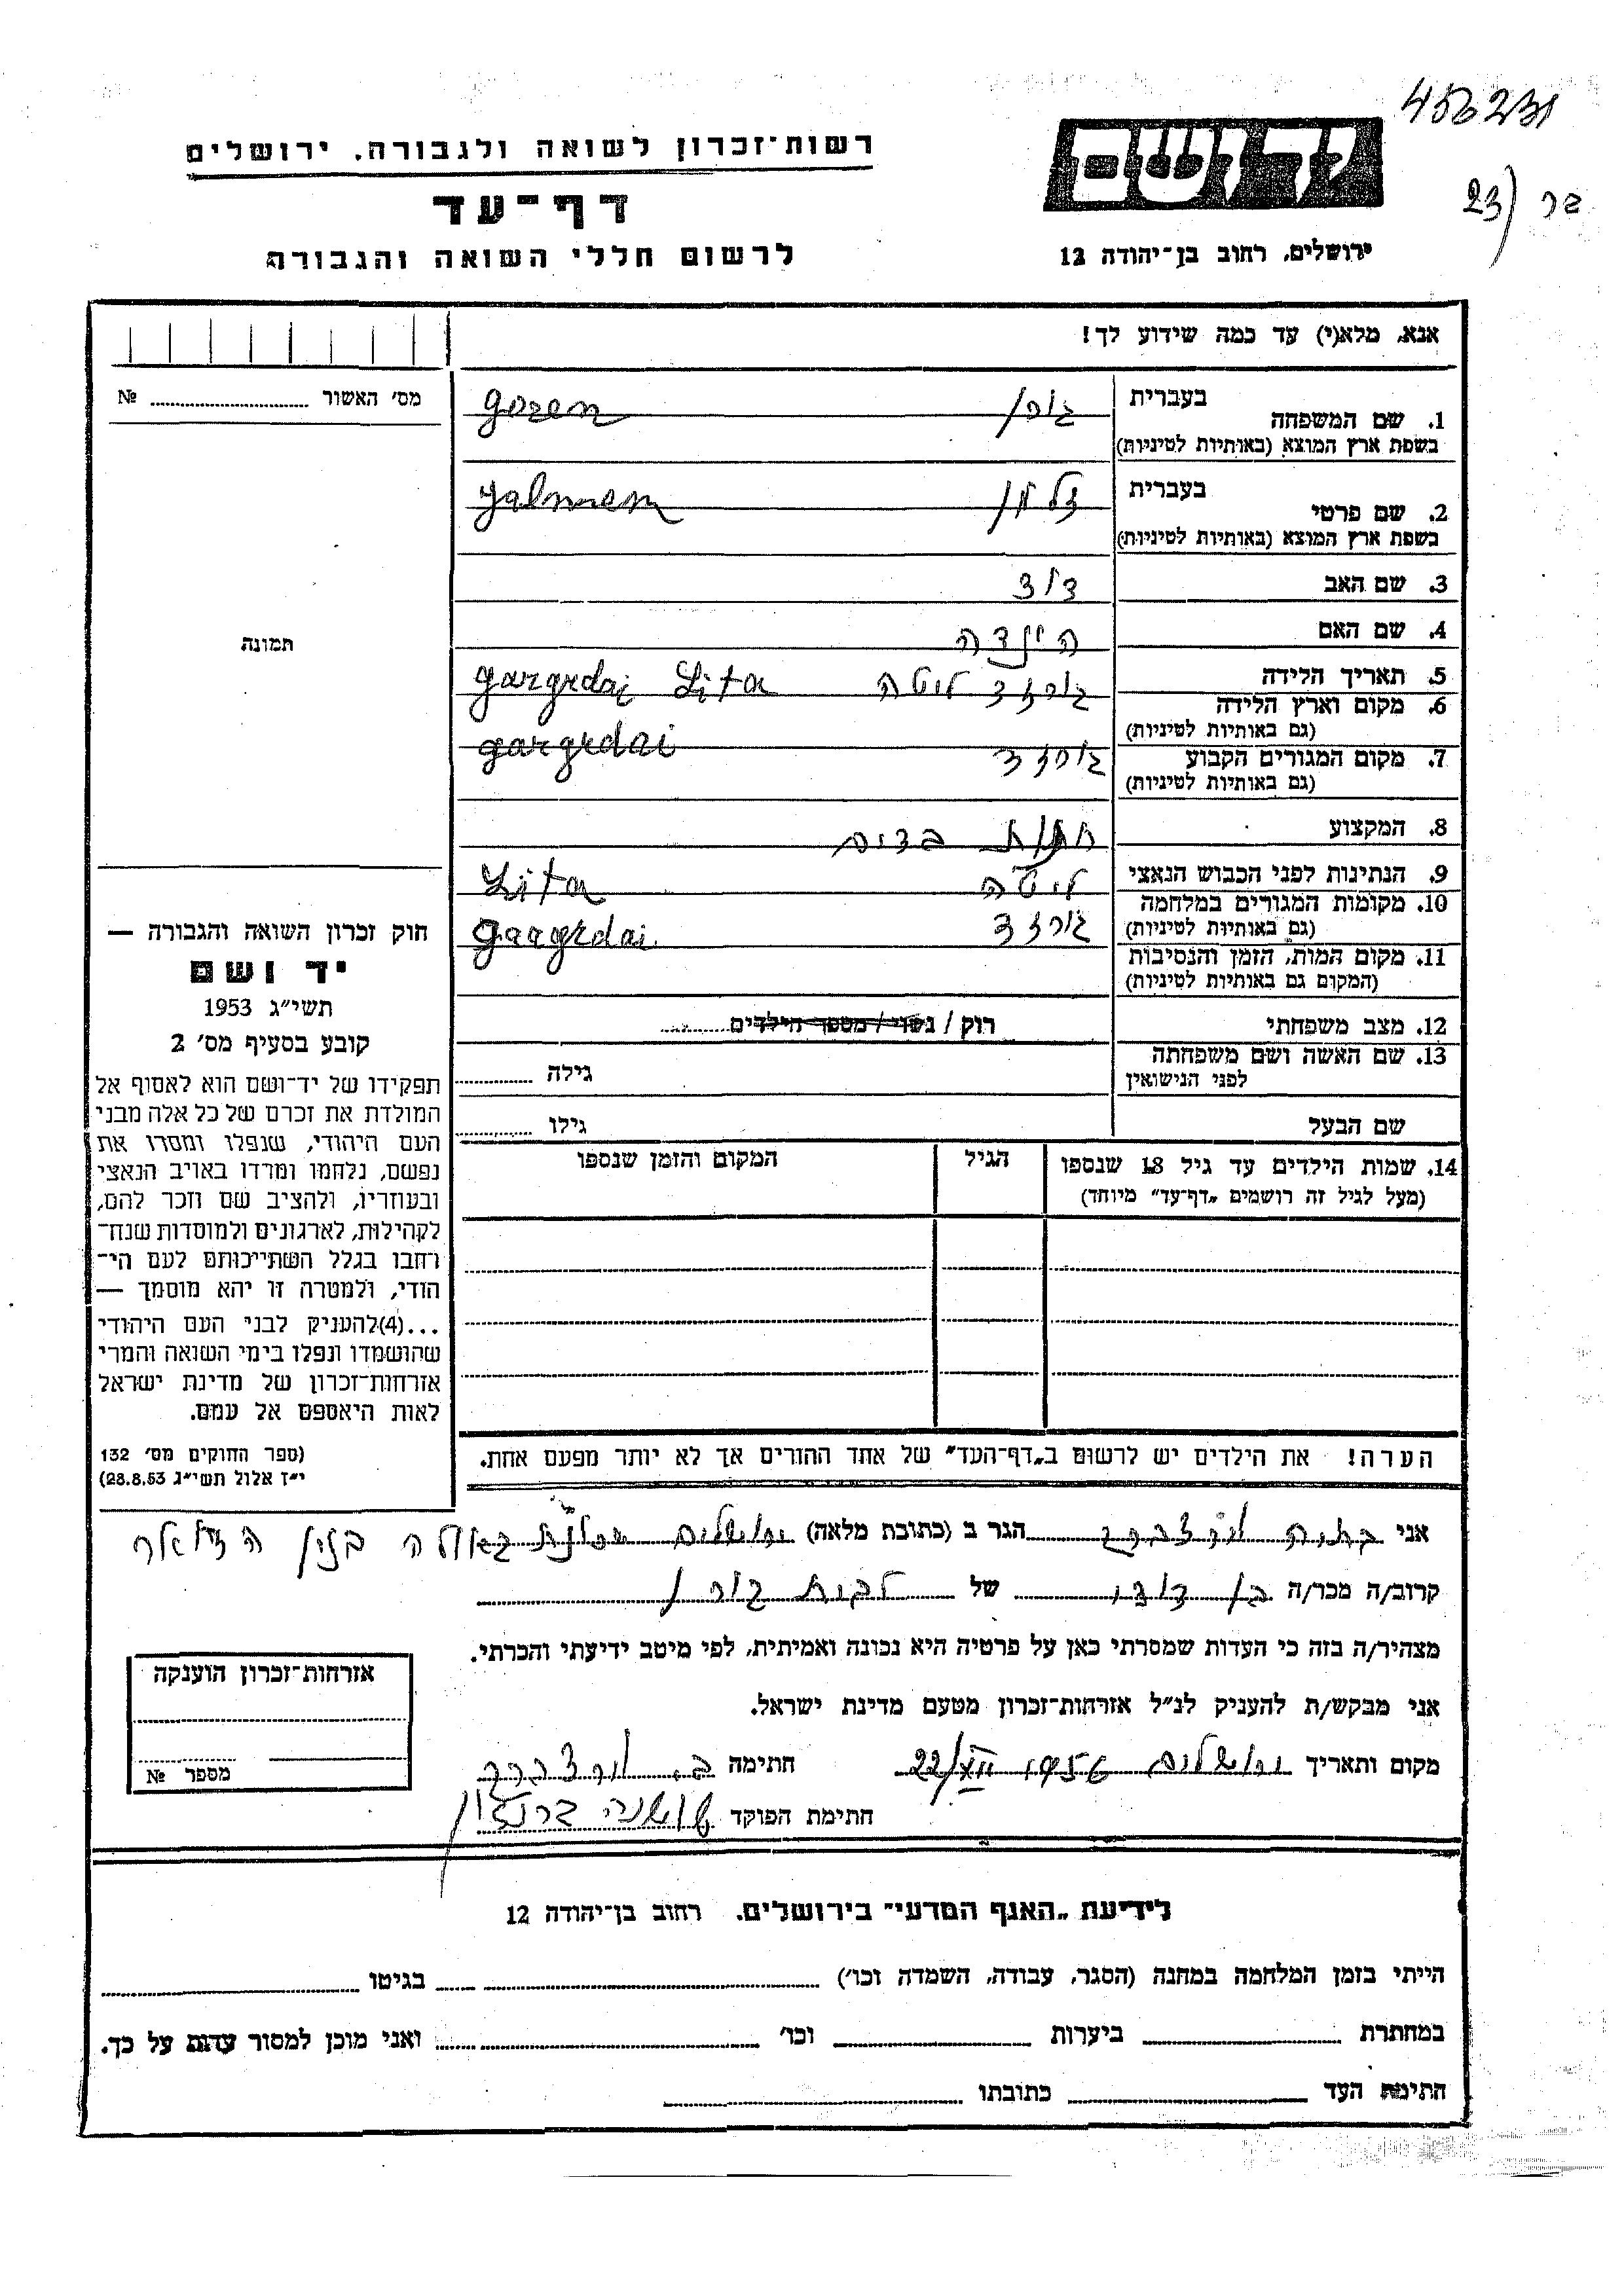 458231
גר 23/
יד ושם
ירושלים, רחוב בן־יהודה 12
רשות־זכרון לשואה ולגבורה, ירושלים
דף־עד
לרשום חללי השואה והגבורה
אנא, מלא(י) עד כמה שידוע לך!
מס׳ האשור № 
1. שם המשפחה בעברית גורן goren
בשפת ארץ המוצא (באותיות לטיניות)
2. שם פרטי בעברית זלמן yalmem
בשפת ארץ המוצא (באותיות לטיניות)
3. שם האב דוד
4. שם האם הינדה
5. תאריך הלידה
6. מקום וארץ הלידה גורזד ליטה gargzdai Lita
(גם באותיות לטיניות)
7. מקום המגורים הקבוע גורזד gargzdai
(גם באותיות לטיניות)
8. המקצוע חנות בדים
9. הנתינות לפני הכבוש הנאצי ליטה Lita
10. מקומות המגורים במלחמה גורזד gaargzdai
(גם באותיות לטיניות)
11. מקום המות, הזמן והנסיבות
(המקום גם באותיות לטיניות)
12. מצב משפחתי רוק / נשוי / מספר הילדים
13. שם האשה ושם משפחתה גילה
לפני הנישואין
שם הבעל גילו
14. שמות הילדים עד גיל 18 שנספו הגיל המקום והזמן שנספו
(מעל לגיל זה רושמים „דף־עד״ מיוחד)
הערה! את הילדים יש לרשום ב„דף־העד״ של אחד ההורים אך לא יותר מפעם אחת.
תמונה
חוק זכרון השואה והגבורה —
יד ושם
תשי״ג 1953
קובע בסעיף מס׳ 2
תפקידו של יד־ושם הוא לאסוף אל
המולדת את זכרם של כל אלה מבני
העם היהודי, שנפלו ומסרו את
נפשם, נלחמו ומרדו באויב הנאצי
ובעוזריו, ולהציב שם וזכר להם,
לקהילות, לארגונים ולמוסדות שנח־
רחבו בגלל השתייכותם לעם הי־
הודי, ולמטרה זו יהא מוסמך —
...(4)להעניק לבני העם היהודי
שהושמדו ונפלו בימי השואה והמרי
אזרחות־זכרון של מדינת ישראל
לאות היאספם אל עמם.
(ספר החוקים מס׳ 132
י״ז אלול תשי״ג 28.8.53)
אני בתיה הגר ב (כתובת מלאה) ירושלים שכונת גאולה בנין הדואר
קרוב/ה מכר/ה בן דודו של לבית גורן
מצהיר/ה בזה כי העדות שמסרתי כאן על פרטיה היא נכונה ואמיתית, לפי מיטב ידיעתי והכרתי.
אני מבקש/ת להעניק לנ״ל אזרחות־זכרון מטעם מדינת ישראל.
מקום ותאריך ירושלים 22/XII 1956 חתימה ב.
חתימת הפוקד שושנה ברנזון
אזרחות־זכרון הוענקה
מספר №
לידיעת „האגף המדעי״ בירושלים, רחוב בן־יהודה 12
הייתי בזמן המלחמה במחנה (הסגר, עבודה, השמדה וכו׳) בגיטו
במחתרת ביערות וכו׳ ואני מוכן למסור עדות על כך.
חתימת העד כתובתו